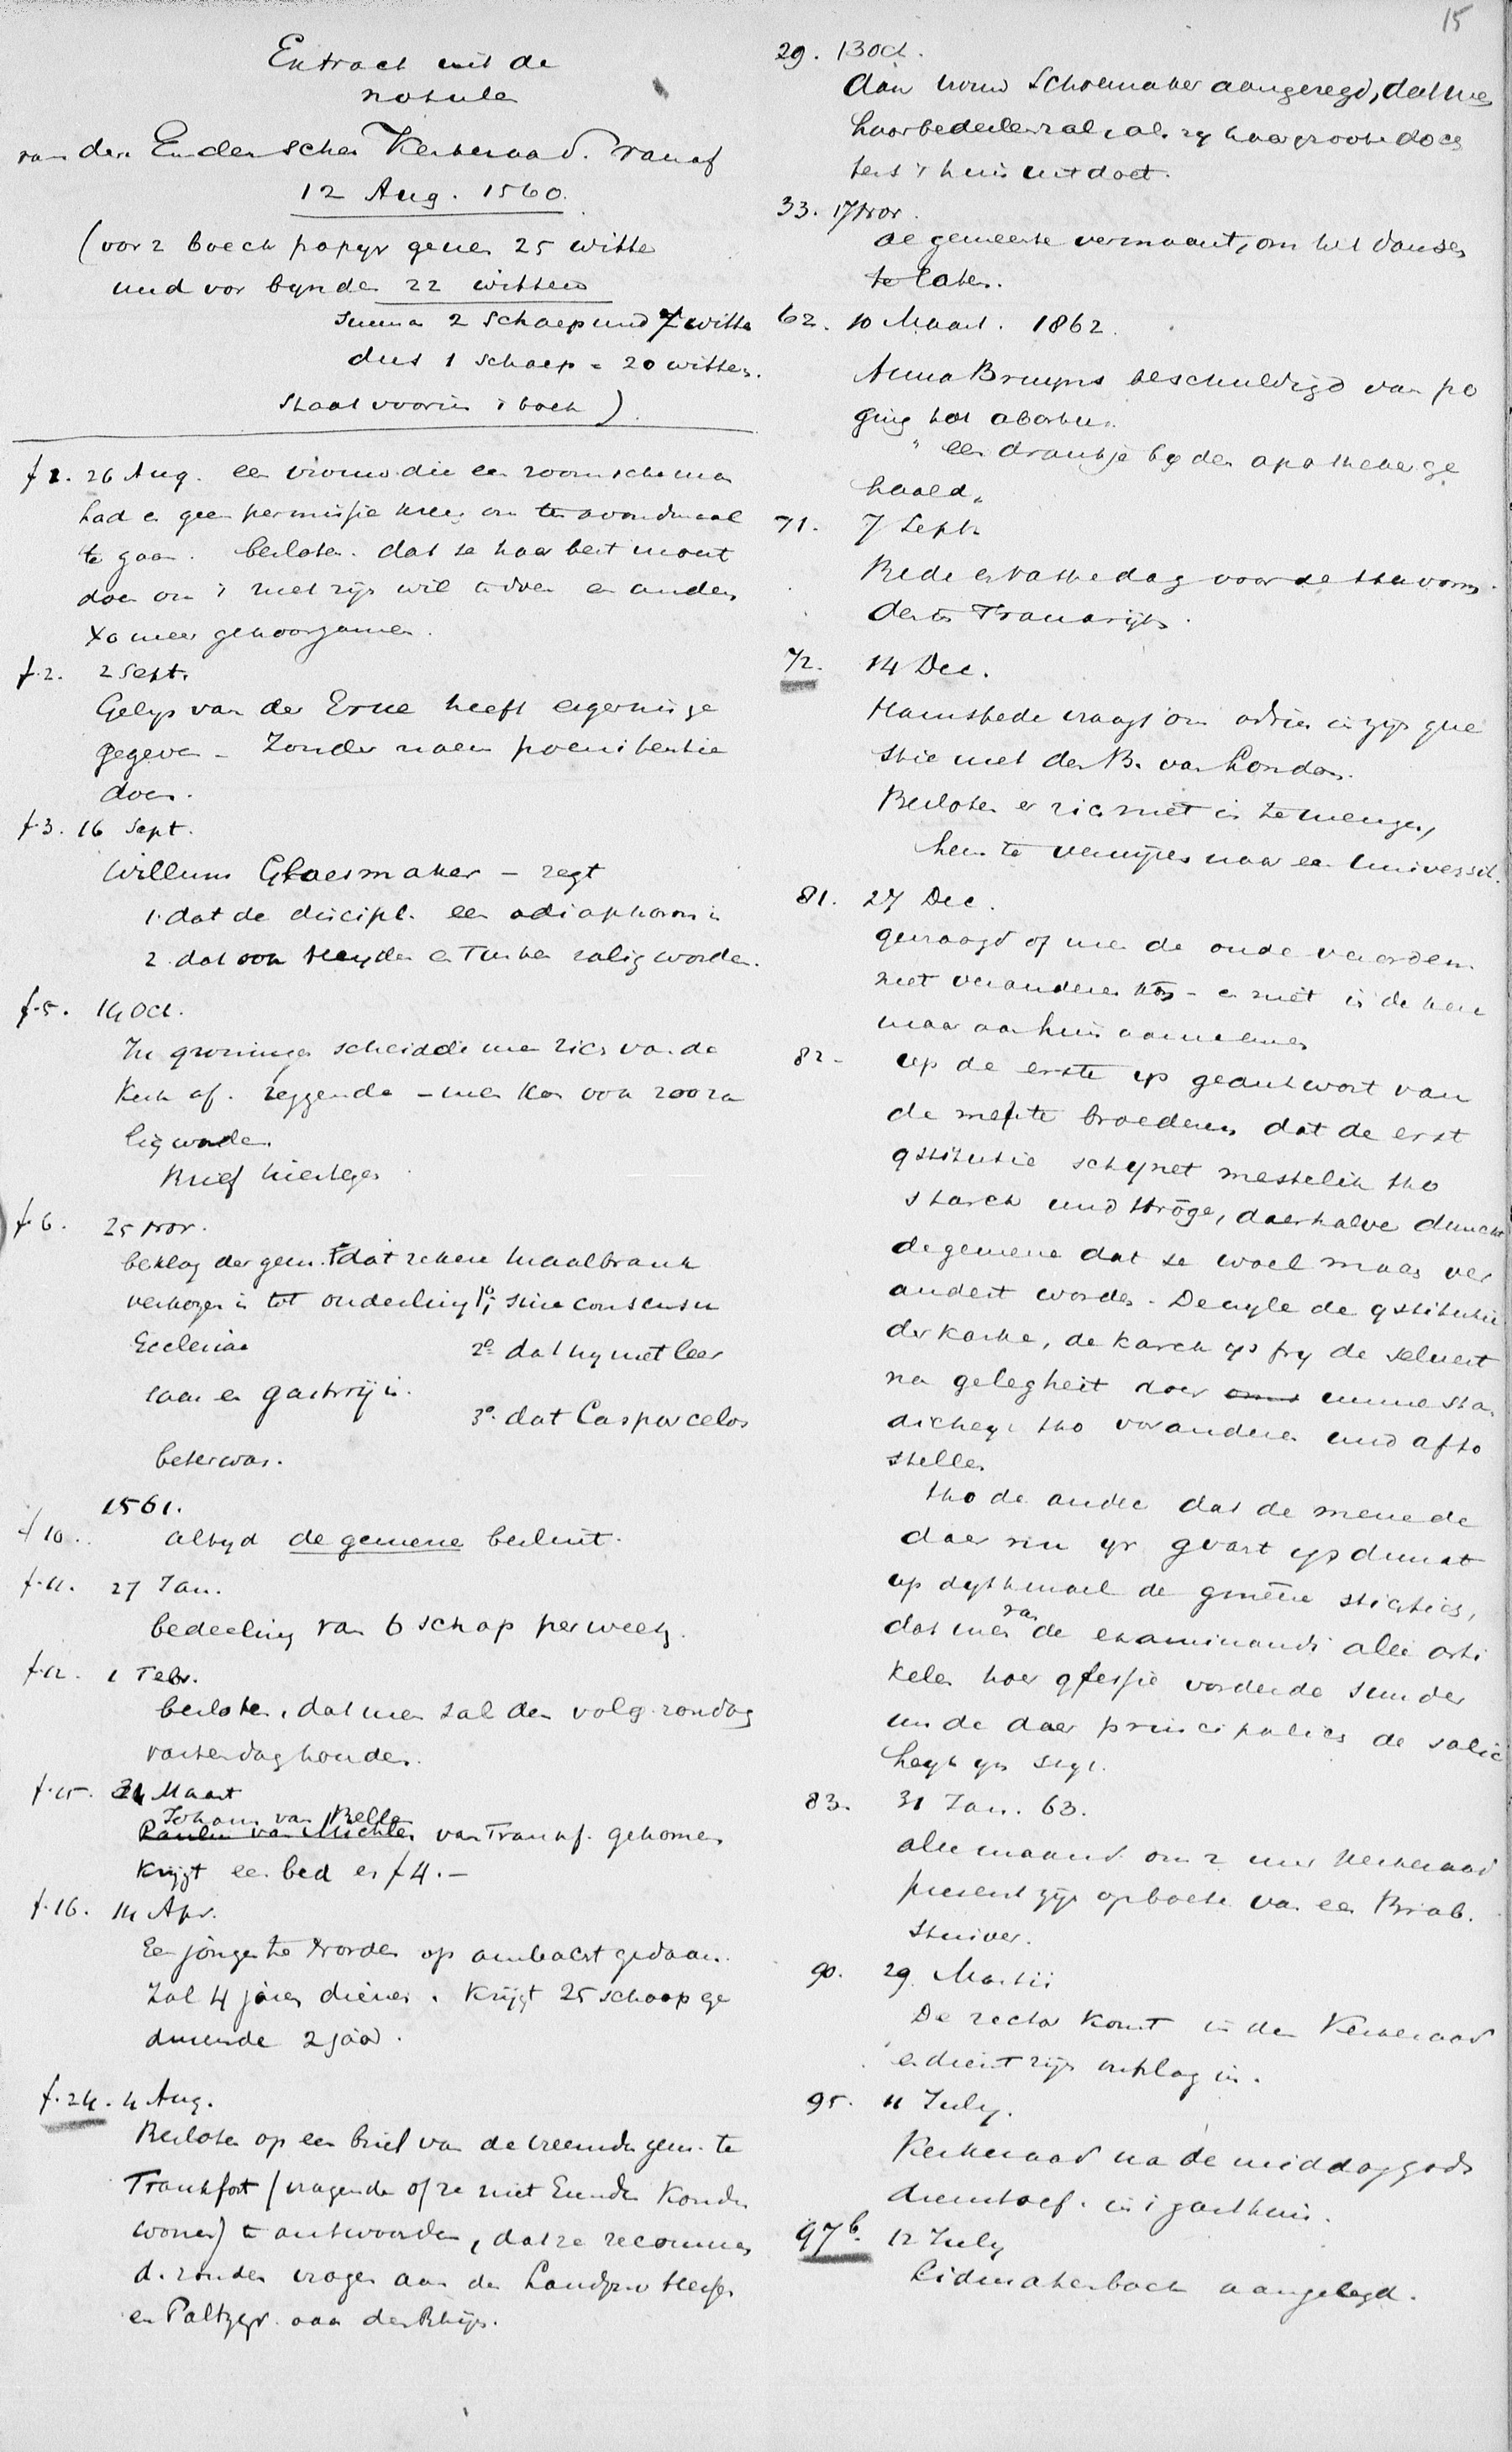 15
Extract uit de
notulen
van den Emdenschen Kerkeraad. vanaf
12 Aug. 1560.
(vor 2 boeck papyr gever 25 witte
und vor bynden 22 witten
Summa 2 Schaep und 7 witte
dus 1 schaep = 20 witten.
Staat voorin 't boek)
f 1. 26 Aug. een vrouw die een roomsche man
had en geen permissie kreeg om ten avondmaal
te gaan. besloten. dat se haar best moet
doen om 't met zijn wil te doen en anders
Xo meer gehoorzamen.
f. 2. 2 Sept.
Gelys van der Erve heeft ergernisse
gegeven - Zonder naem poenitentie
doen.
f. 3. 16 Sept.
Willem Glaesmaker - zegt
1. dat de discipl. een adiaphoron is
2. dat ook Heyden en Turken zalig worden.
f. 5. 14 Oct.
In Groningen scheidde men zich van de
Kerk af. zeggende - men kon ook zoo za
lig worden.
Brief hiertegen.
f 6. 25 Nov.
beklag der gem. dat zekere Maalbrank
verkozen is tot ouderling 1o; sine consensu
Ecclesiae
2o dat hy niet leer
zaam en gastvrij is.
3o. dat Caspar celos
beter was.
1561.
f 10. altyd de gemene besluit.
f. 11. 27 Jan.
bedeeling van 6 schap per week.
f. 12. 1 Febr.
besloten, dat men zal den volg. zondag
vastendag houden.
f. 15. 31 Maart
Johan van Belle
Paulus van Michten van Frankf. gekomen
Krijgt een bed en f 4.-
f. 16. 14 Apr.
Een jongen te Norden op ambacht gedaan.
Zal 4 jaren dienen. Krijgt 25 schaap ge
durende 2 jaar.
f. 24. 4 Aug.
Besloten op een brief van de vreemde gem. te
Frankfort (vragende of ze niet Emden konden
wonen) te antwoorden, dat ze recomman
d. zouden vragen aan den Landgr. v Hessen
en Paltzgr. aan den Rhijn.
29. 13 Oct.
Aan vrouw Schoemaker aangezegd, dat men
haar bedeelen zal, als zy haar groote doch
ters 't huis uit doet.
33. 17 Nov.
de gemeente vermaant, om het dansen
te laten.
62. 10 Maart. 1862.
Anna Bruyns beschuldigd van po
ging tot abortus.
" een drankje by den apotheker ge
haald"
71. 7 Sept
Bede en vastedag voor de
den in Frankrijk.
72. 14 Dec.
Haemstede vraagt om advies in zijn que
stie met den B. van Londen.
Besloten er zich niet in te mengen,
hem te verwijzen naar een Universit.
81. 27 Dec.
gevraagd of men de oude
niet veranderen kon - en niet in de kerk
maar aan huis aannemen
82. up de erste ys geantwort van
de meste broederen dat de erst
qstitutie schynet mestelik tho
starck und ströge, daerhalve dunckt
de gemene dat se wael maeg ver
andert worden. Dewyle de qstitutie
der karke, de karck ys fry de selvert
na gelegheit doer omme sta
dicheyt tho veranderen und af tho
stellen
tho de ander dat de menede
daer nu yr ys dunckt
up dythmael de gmene stichtich,
dat men van de examinandi alle arti
kelen hoer qfessie vorderde sunder
unde daer principalick de salic
heyt yn steyt.
83. 31 Jan. 63.
alle maand om 2 uur Kerkeraad
present zijn op boete van een Brab.
stuiver.
90. 29 Martii
De rector komt in den Kerkeraad
en dient zijn ontslag in.
95. 11 July.
Kerkeraad na de middaggods
dienstoef. in 't gasthuis.
97b. 12 July
Lidmatenboek aangelegd.